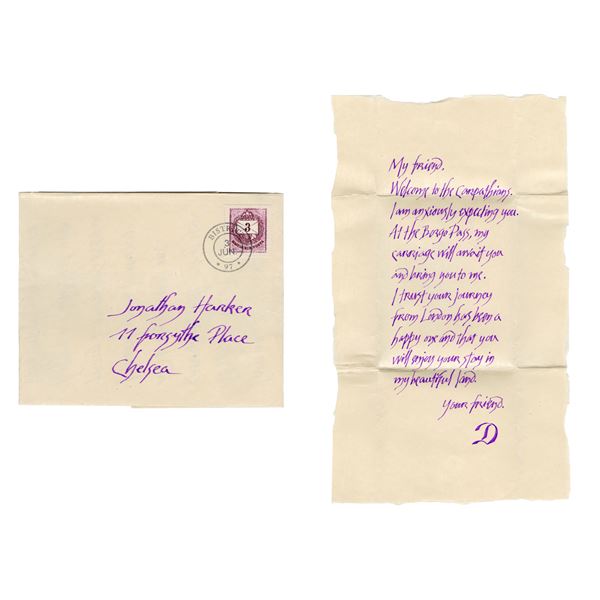 BISTRI
3
JUN
* 97 *
3
Jonathan Harker
11 Forsythe Place
Chelsea
My friend.
Welcome to the Carpathians.
I am anxiously expecting you.
At the Borgo Pass, my
carriage will await you
and bring you to me.
I trust your journey
from London has been a
happy one and that you
will enjoy your stay in
my beautiful land.
Your friend.
D